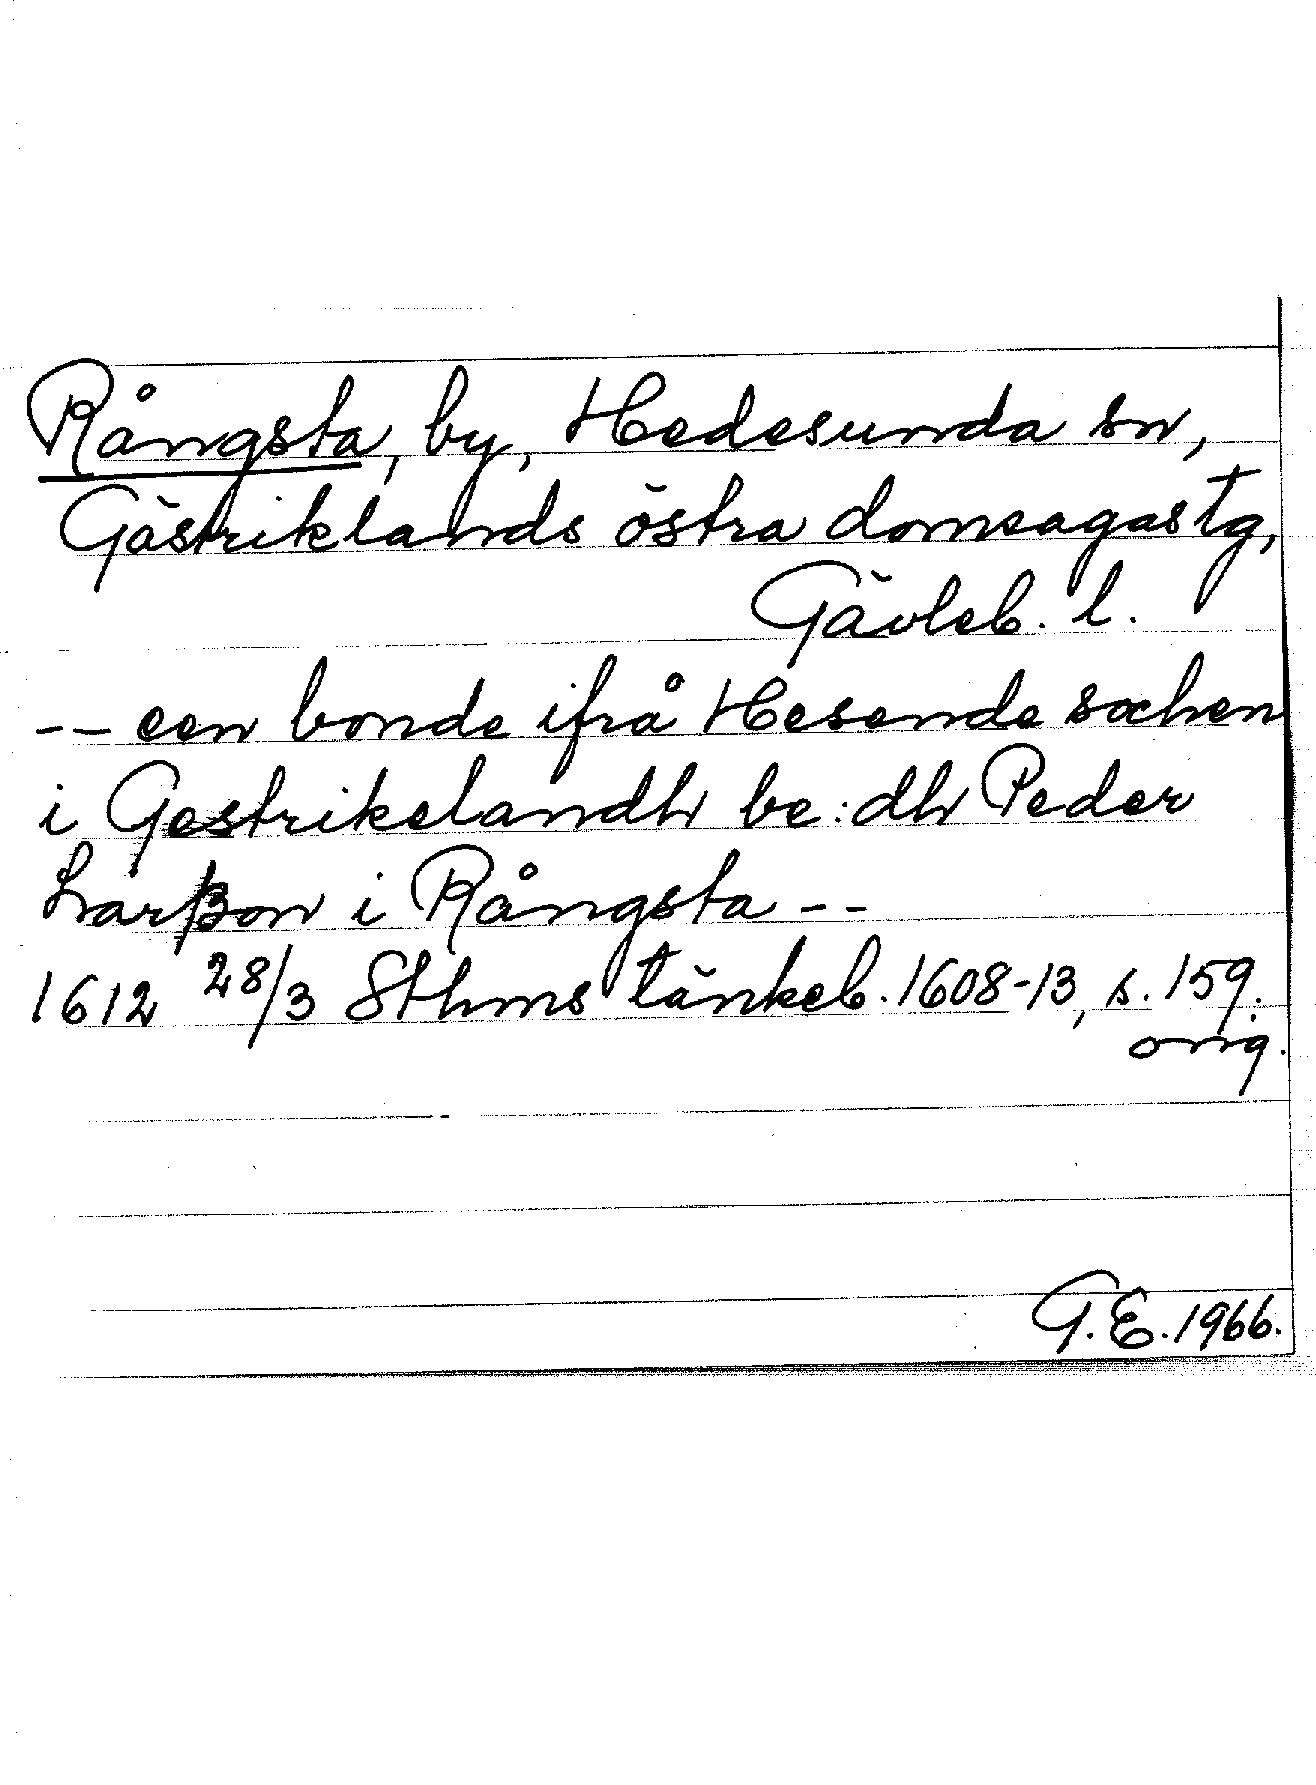 Rångsta, by, Hedesunda sn,
Gästriklands östra domsagas tg,
Gävleb. l.
-- een bonde ifrå Hesende sochen
i Gestrikelandh be:dh Peder
Larßon i Rångsta --
1612 28/3 Sthms tänkeb. 1608-13, s. 159.
orig.
G. E. 1966.